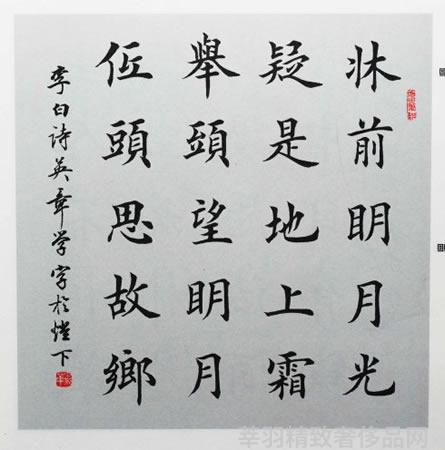 牀前明月光
疑是地上霜
舉頭望明月
低頭思故鄉
李白诗英章学字於燈下
莘羽精致奢侈品网